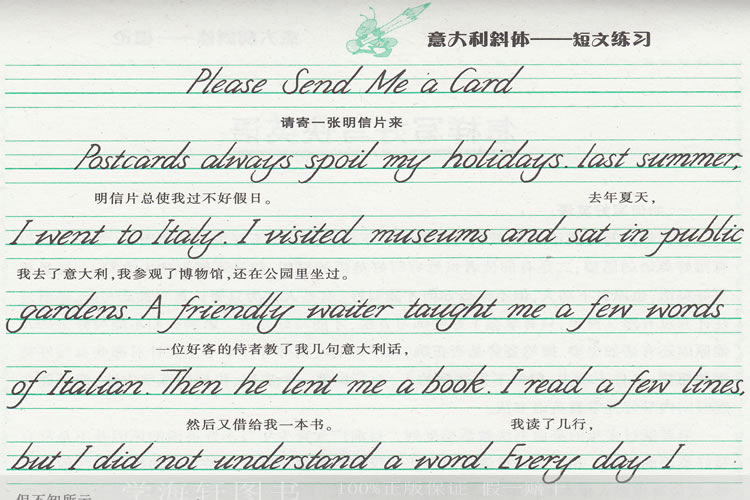 意大利斜体——短文练习
Please Send Me a Card
请寄一张明信片来
Postcards always spoil my holidays. Last summer,
明信片总使我过不好假日。 去年夏天，
I went to Italy. I visited museums and sat in public
我去了意大利，我参观了博物馆，还在公园里坐过。
gardens. A friendly waiter taught me a few words
一位好客的侍者教了我几句意大利话，
of Italian. Then he lent me a book. I read a few lines,
然后又借给我一本书。 我读了几行，
but I did not understand a word. Every day I
学海轩图书 100%正版保证 假一赔
但不知所云